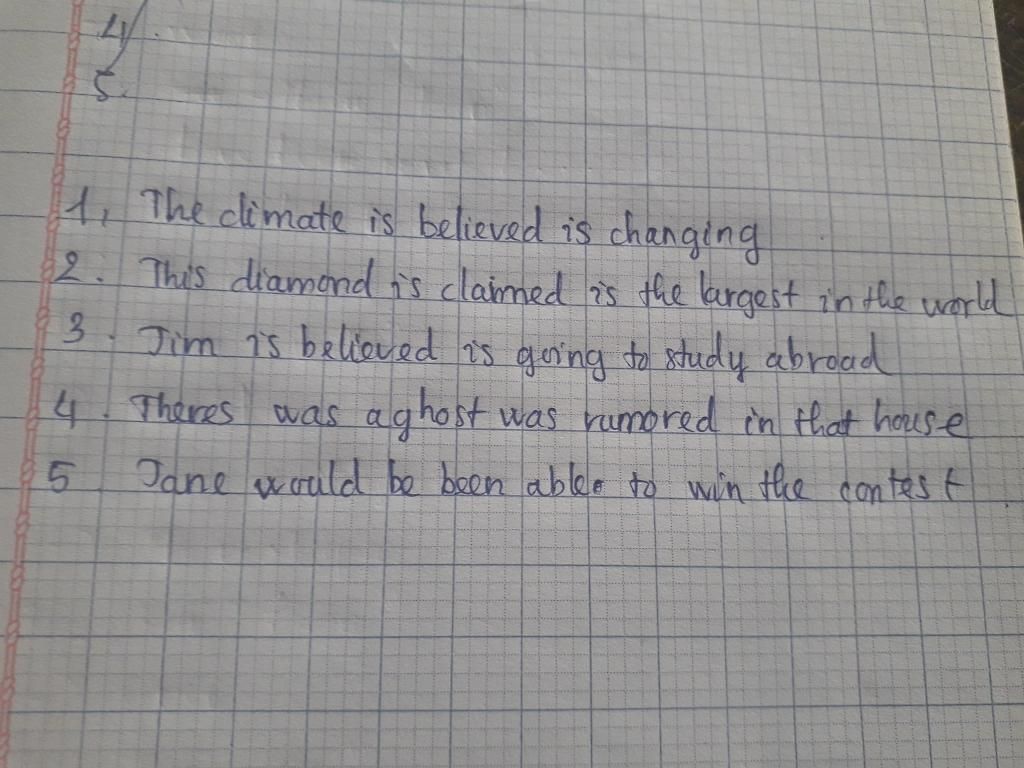 4.
5.
1, The climate is believed is changing
2. This diamond is claimed is the largest in the world
3. Jim is believed is going to study abroad
4. Theres was a ghost was rumored in that house
5 Jane would be been able to win the contest